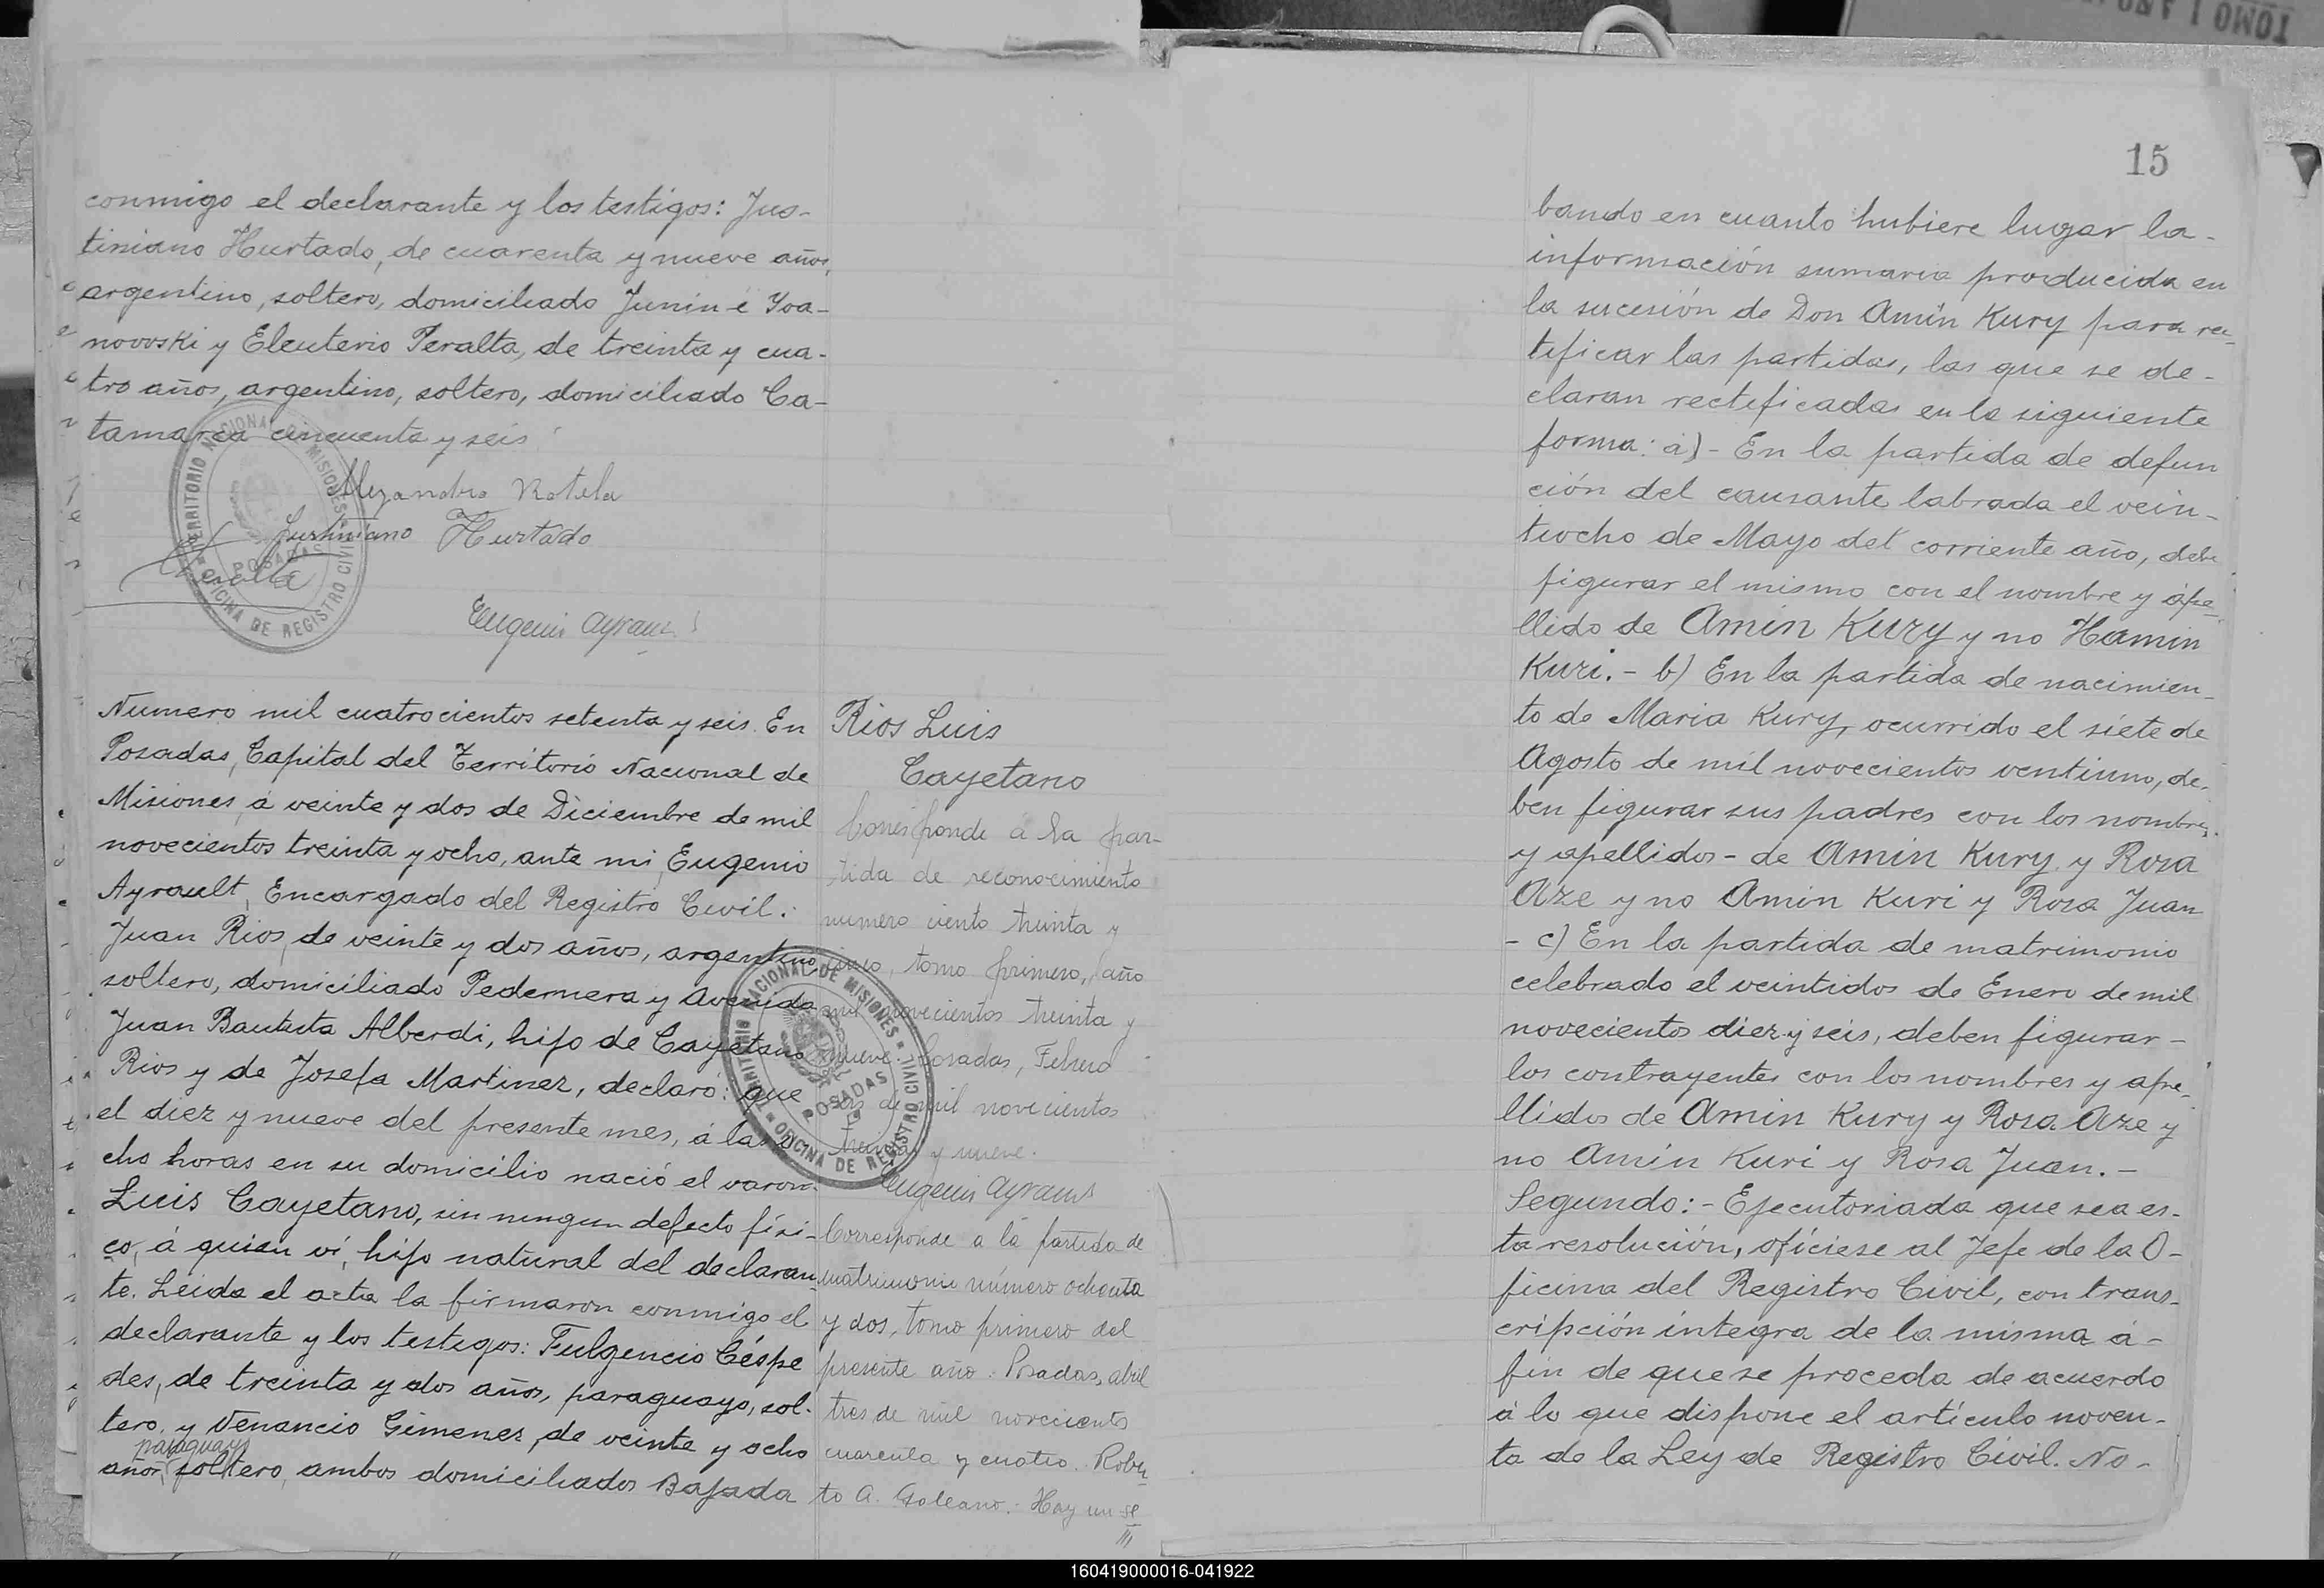 TOMO I AÑO
conmigo el declarante y los testigos: Jus-
tiniano Hurtado, de cuarenta y nueve años,
argentino, soltero, domiciliado Junin é Yoa-
novoski y Eleuterio Peralta, de treinta y cua-
tro años, argentino, soltero, domiciliado Ca-
tamarca cincuenta y seis
TERRITORIO NACIONAL DE MISIONES
POSADAS
OFICINA DE REGISTRO CIVIL
Alejandro Rotela
Justiniano Hurtado
Peralta
Eugenio Ayrault
Numero mil cuatrocientos setenta y seis. En
Posadas, Capital del Territorio Nacional de
Misiones, á veinte y dos de Diciembre de mil
novecientos treinta y ocho, ante mi, Eugenio
Ayrault, Encargado del Registro Civil:
Juan Rios, de veinte y dos años, argentino,
soltero, domiciliado Pedernera y Avenida
Juan Bautista Alberdi, hijo de Cayetano
Rios y de Josefa Martinez, declaró: que
el diez y nueve del presente mes, á las o
cho horas en su domicilio nació el varon
Luis Cayetano, sin ningun defecto físi-
co, á quien ví, hijo natural del declaran-
te. Leida el acta la firmaron conmigo el
declarante y los testigos: Fulgencio Céspe
des, de treinta y dos años, paraguayo, sol-
tero, y Venancio Gimenez, de veinte y ocho
paraguayo
años, soltero, ambos domiciliados Bajada
Rios Luis
Cayetano
Corresponde a la par-
tida de reconocimiento
numero ciento treinta y
cinco, tomo primero, año
mil novecientos treinta y
nueve. Posadas, Febrero
de mil novecientos
treinta y nueve.
Eugenio Ayrault
TERRITORIO NACIONAL DE MISIONES
POSADAS
OFICINA DE REGISTRO CIVIL
Corresponde a la partida de
matrimonio número ochenta
y dos, tomo primero del
presente año: Posadas, abril
tres de mil novecientos
cuarenta y cuatro. Rober
to A. Galeano: Hay un se
///
15
bando en cuanto hubiere lugar la-
información sumaria producida en
la sucesión de Don Amin Kury para rec-
tificar las partidas, las que se de-
claran rectificadas en la siguiente
forma: a)- En la partida de defun
ción del causante labrada el vein-
tiocho de Mayo del corriente año, debe
figurar el mismo con el nombre y ape-
llido de Amin Kury y no Hamin
Kuri.- b) En la partida de nacimien-
to de Maria Kury, ocurrido el siete de
Agosto de mil novecientos ventiuno, de-
ben figurar sus padres con los nombres
y apellidos- de Amin Kury y Rosa
Aze y no Amin Kuri y Rosa Juan
- c) En la partida de matrimonio
celebrado el veintidos de Enero de mil
novecientos diez y seis, deben figurar-
los contrayentes con los nombres y ape-
llidos de Amin Kury y Rosa Aze y
no Amin Kuri y Rosa Juan.-
Segundo:- Ejecutoriada que sea es-
ta resolución, ofíciese al Jefe de la O-
ficina del Registro Civil, con trans-
cripción integra de la misma á-
fin de que se proceda de acuerdo
á lo que dispone el artículo noven-
ta de la Ley de Registro Civil. No-
160419000016-041922